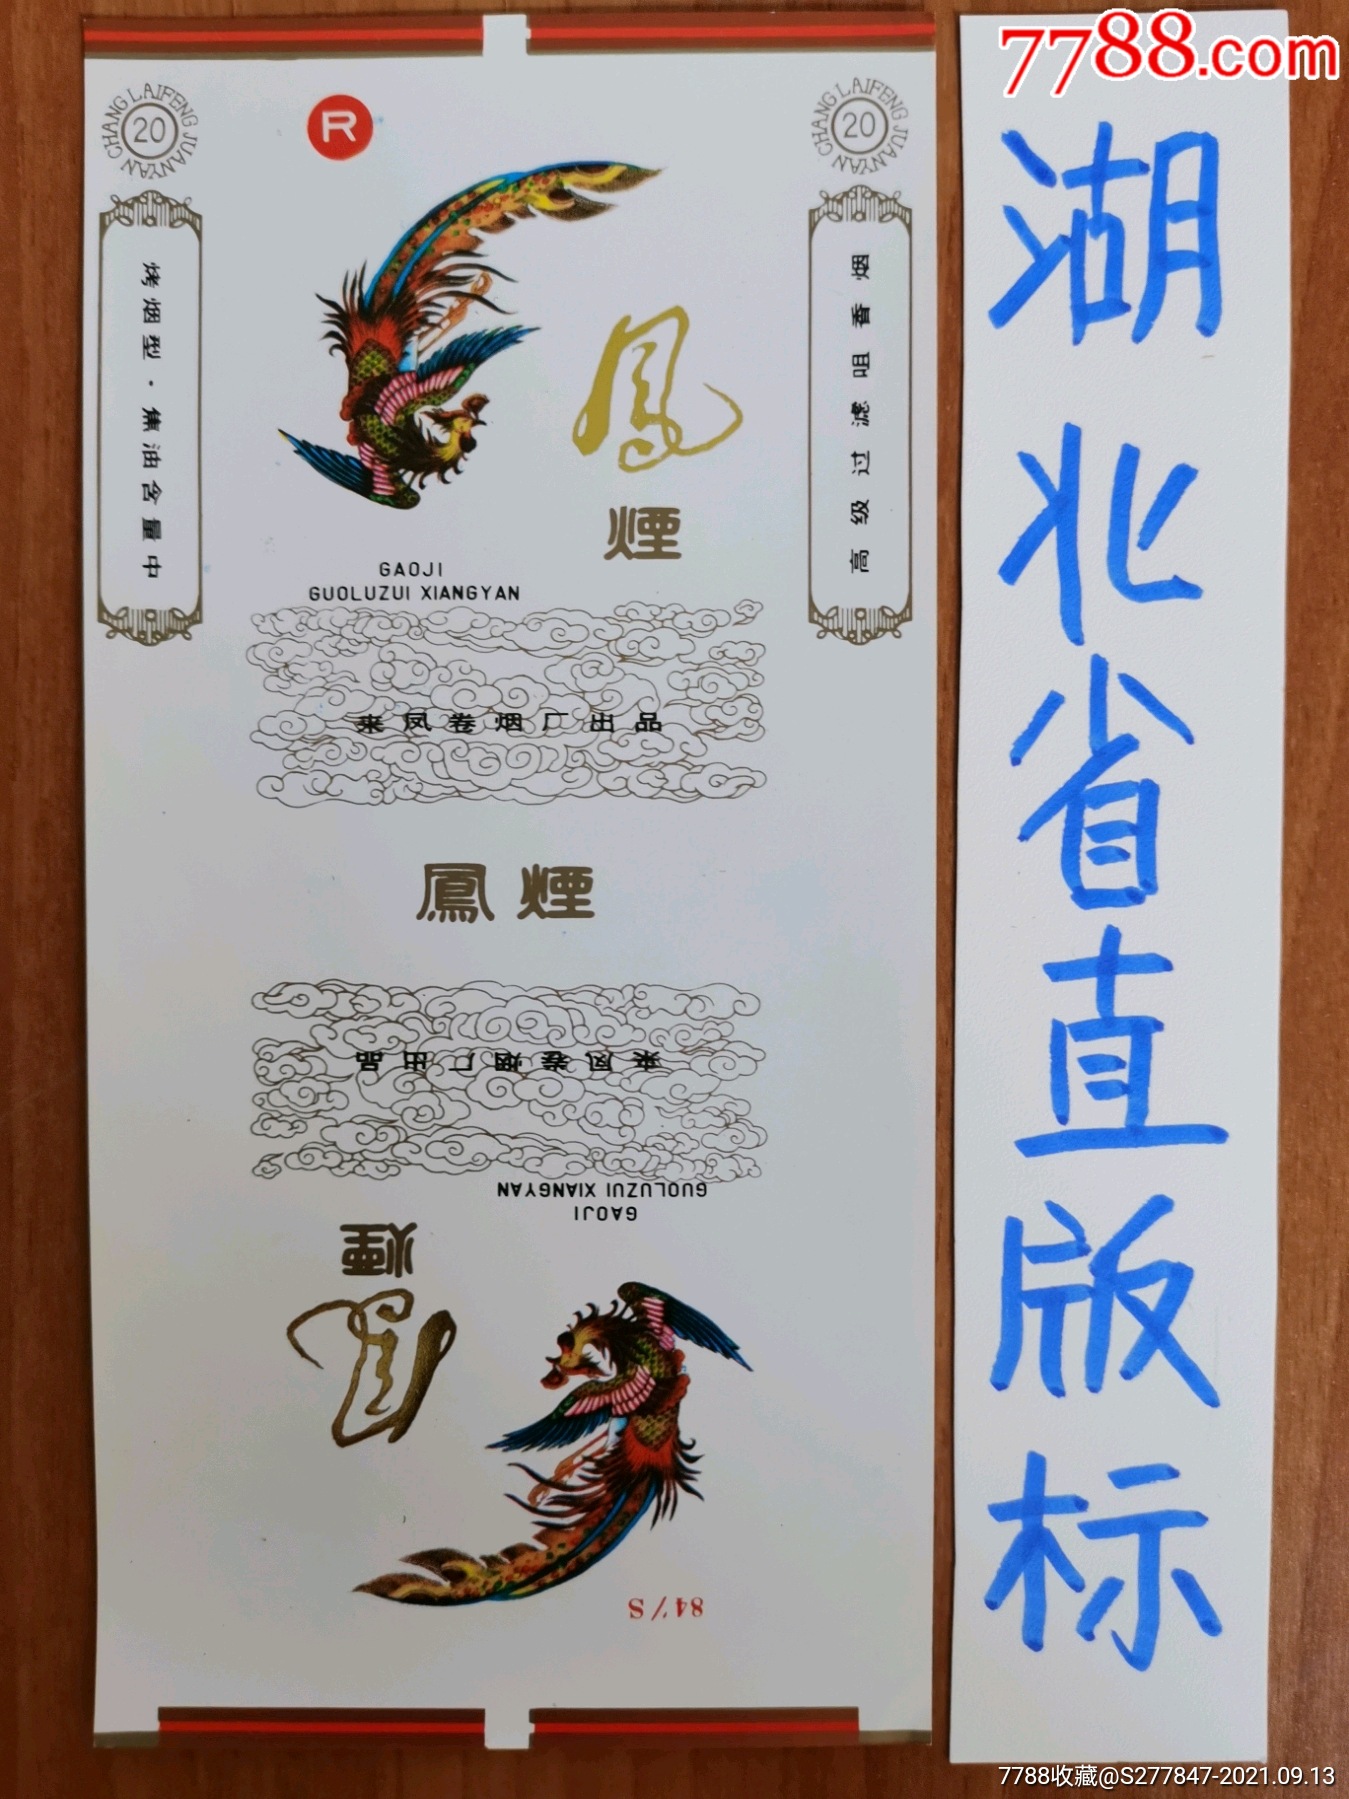 7788.com
CHANG LAIFENG JUANYAN
20
R
CHANG LAIFENG JUANYAN
20
烤烟型·焦油含量中
高级过滤咀香烟
鳳
煙
GAOJI
GUOLUZUI XIANGYAN
来凤卷烟厂出品
鳳煙
来凤卷烟厂出品
GUOLUZUI XIANGYAN
GAOJI
煙
鳳
84/S
湖北省直版标
7788收藏@S277847-2021.09.13